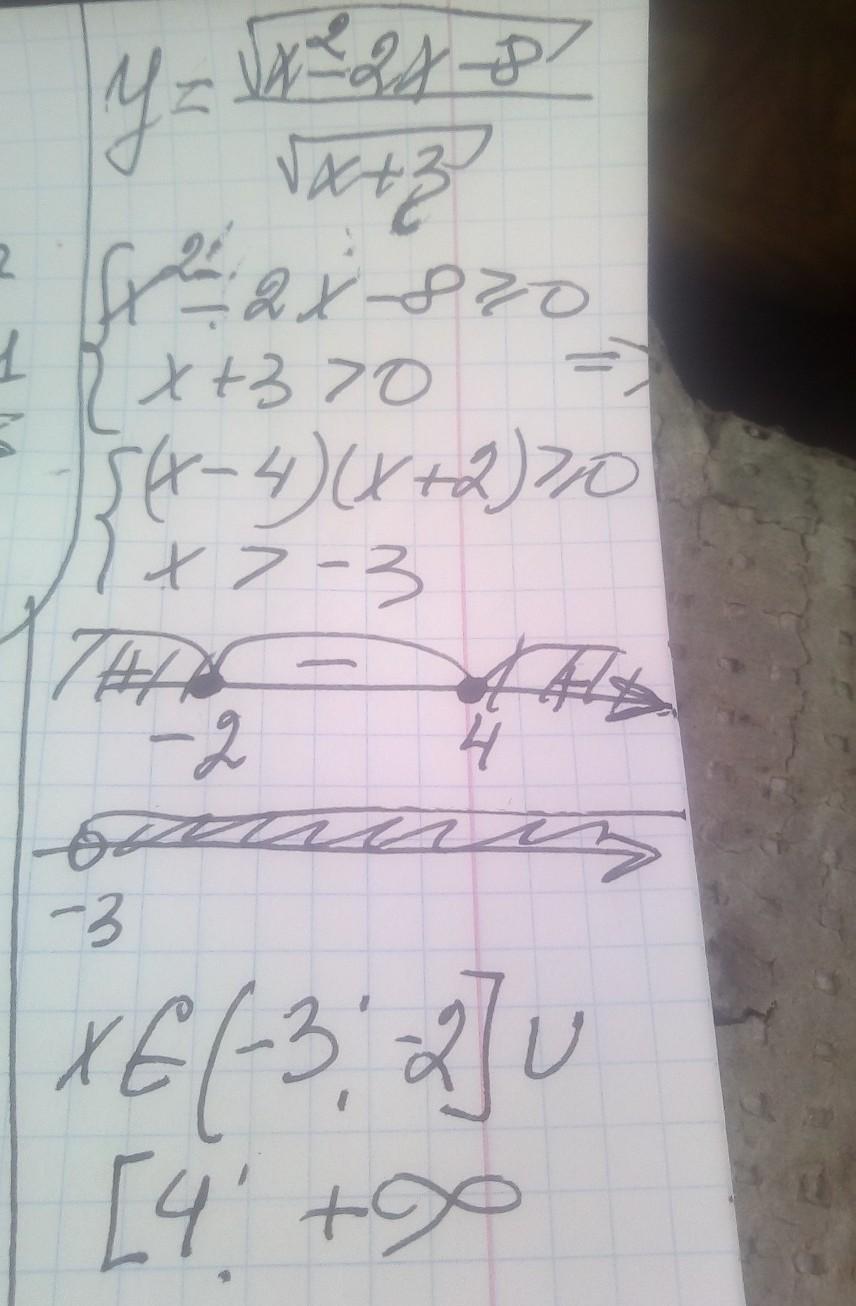 y = √x²-2x-8
√x+3
{x²-2x-8≥0
x+3>0 =>
{(x-4)(x+2)≥0
x>-3
+ - +
-2 4
-3
x∈(-3; -2]∪
[4; +∞